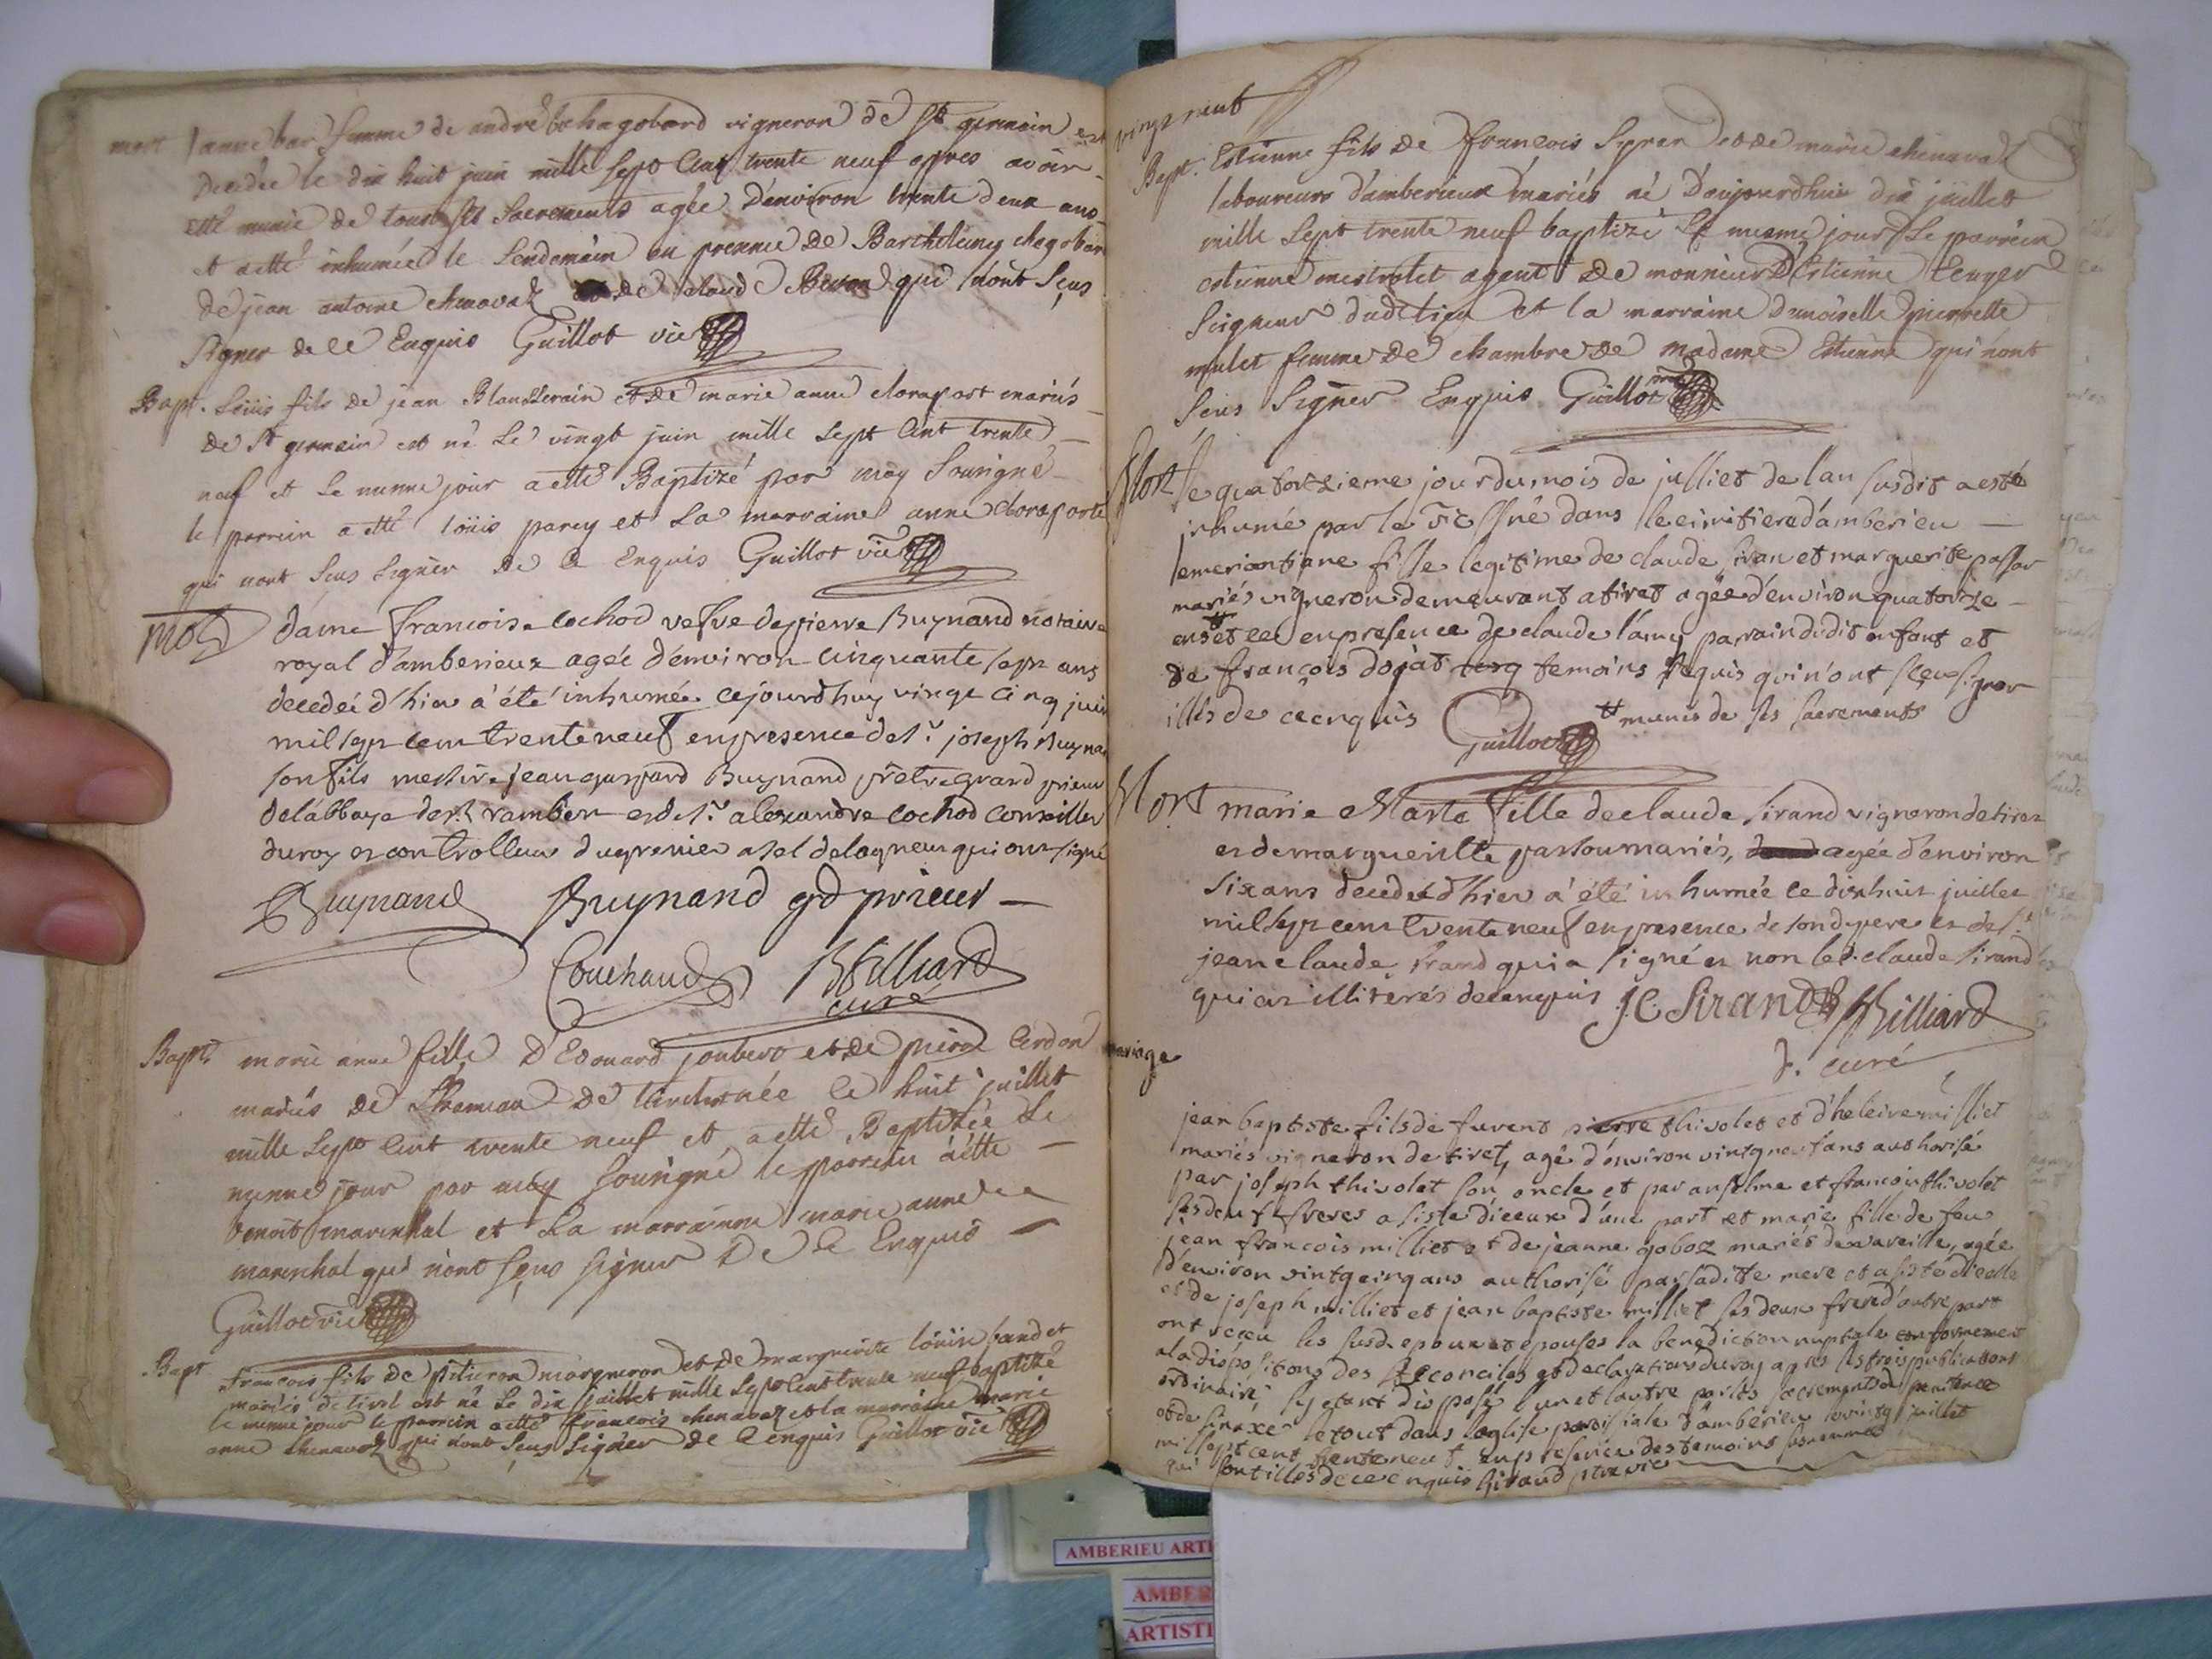 mort anne bar femme de andré chagobard vigneron de St germain est
decedée le dix huit juin mille sept cent trente neuf apres avoir
esté munie de tous ses sacrements agée d'environ trente deux ans
et aetté inhumée le lendemain en presence de Barthelemy chagobar
de jean antoine chenavak de claude qui n'ont sçus
signer de ce Enquis Guillot vic
Bapt. Loüis fils de jean Blancherain et de marie anne delaraport mariés
de St germain est né le vingt juin mille sept cent trente
neuf et le meme jour aetté Baptizé par moy soussigné
le parrein aetté loüis parcy et La marraine anne
qui nont sçus signer de ce Enquis Guillot vic
mort dame francoise cochod vefve depierre Buynand notaire
royal d'amberieux agée d'environ cinquante sept ans
decedeé d'hier a été inhumée cejourdhuy vingt cinq juin
mil sept cent trente neuf en presence de Sr joseph Buynan
son fils messire jean gaspard Buynand prêtre grand prieur
de labbaye de St rambert et de Sr alexandre cochod conseiller
du roy et controlleur du grenier a sel de lagneu qui ont signé
Buynand Buynand gd prieur
Couchaud Billiard
curé
Bapt. marie anne fille d'Edouard joubert et de pierre Cerdon
mariés de née le huit juillet
mille sept cent trente neuf et aetté Baptizée le
meme jour par moy soussigné le parrein aetté
benoit mareschal et La marrainne marie anne
mareschal qui n'ont sçus signer de ce Enquis
Guillot vic
Bapt francois fils de margueron et de marguerite loüise
mariés de tiret est né le dix juillet mille sept cent trente neuf baptizé
le meme jour le parrein aetté francois chenavaz et la marraine marie
anne chenavaz qui nont sçus signer de ce enquis Guillot vic
vingt neuf
Bapt. Estienne fils de francois Syran et de marie chenavak
laboureurs d'amberieux mariés né d'aujourdhuy dix juillet
mille sept trente neuf baptizé le mesme jour Le parrein
estienne mestralet agent de monsieur d'Estienne
seigneur dudt lieu et la marraine demoiselle pierrette
mulet femme de chambre de madame Estienne qui nont
sçus signer Enquis Guillot
Mort le quatorzieme jour du mois de julliet de lan susdit a esté
inhumé par le vic sné dans le cimitiere d'amberieu
emerantiane fille legitime de claude siran et marguerite passar
mariés vigneron demeurant a tiret agée d'environ quatorze
ans et ce en presence de claude l'amy parrain dudit enfant et
de françois dojat temoins requis qui n'ont sceu signer
illés de ce enquis Guillot # munis de ses sacrements
Mort marie Marte fille de claude sirand vigneron de tiret
et de margueritte passou mariés, agée d'environ
six ans decedeé d'hier a été inhumée ce dixhuit juillet
mil sept cent trente neuf en presence de sondt pere et de Sr
jean claude sirand qui a signé et non led. claude sirand
qui est illiterés de ce enquis J C Sirand Billiard
curé
mariage
jean baptiste fils de furent pierre thivolet et d'heleine milliet
mariés vigneron de tiret, agé d'environ vintgneuf ans authorisé
par joseph thivolet son oncle et par anselme et francois thivolet
ses deux freres asisté d'iceux d'une part et marie fille de feu
jean francois milliet et de jeanne goboz mariés de vareille, agée
d'environ vintgcinq ans authorisé par saditte mere et asisté d'icelle
et de joseph milliet et jean baptiste milliet ses deux frere d'autre part
ont receu les susd. epoux et epouses la benediction nuptiale conformement
a la dispositions des Sts conciles et declaration du roy apres les trois publications
ordinaire, sy etant disposé l'un et lautre par les sacrements de penitence
et de sinaxe le tout dans leglise paroissiale d'amberieu le vintg juillet
mil sept cent trente neuf en presence des temoins susnommes
qui sont illés de ce enquis Giraud ptre vic
AMBERIEU ARTI
AMBER
ARTISTI